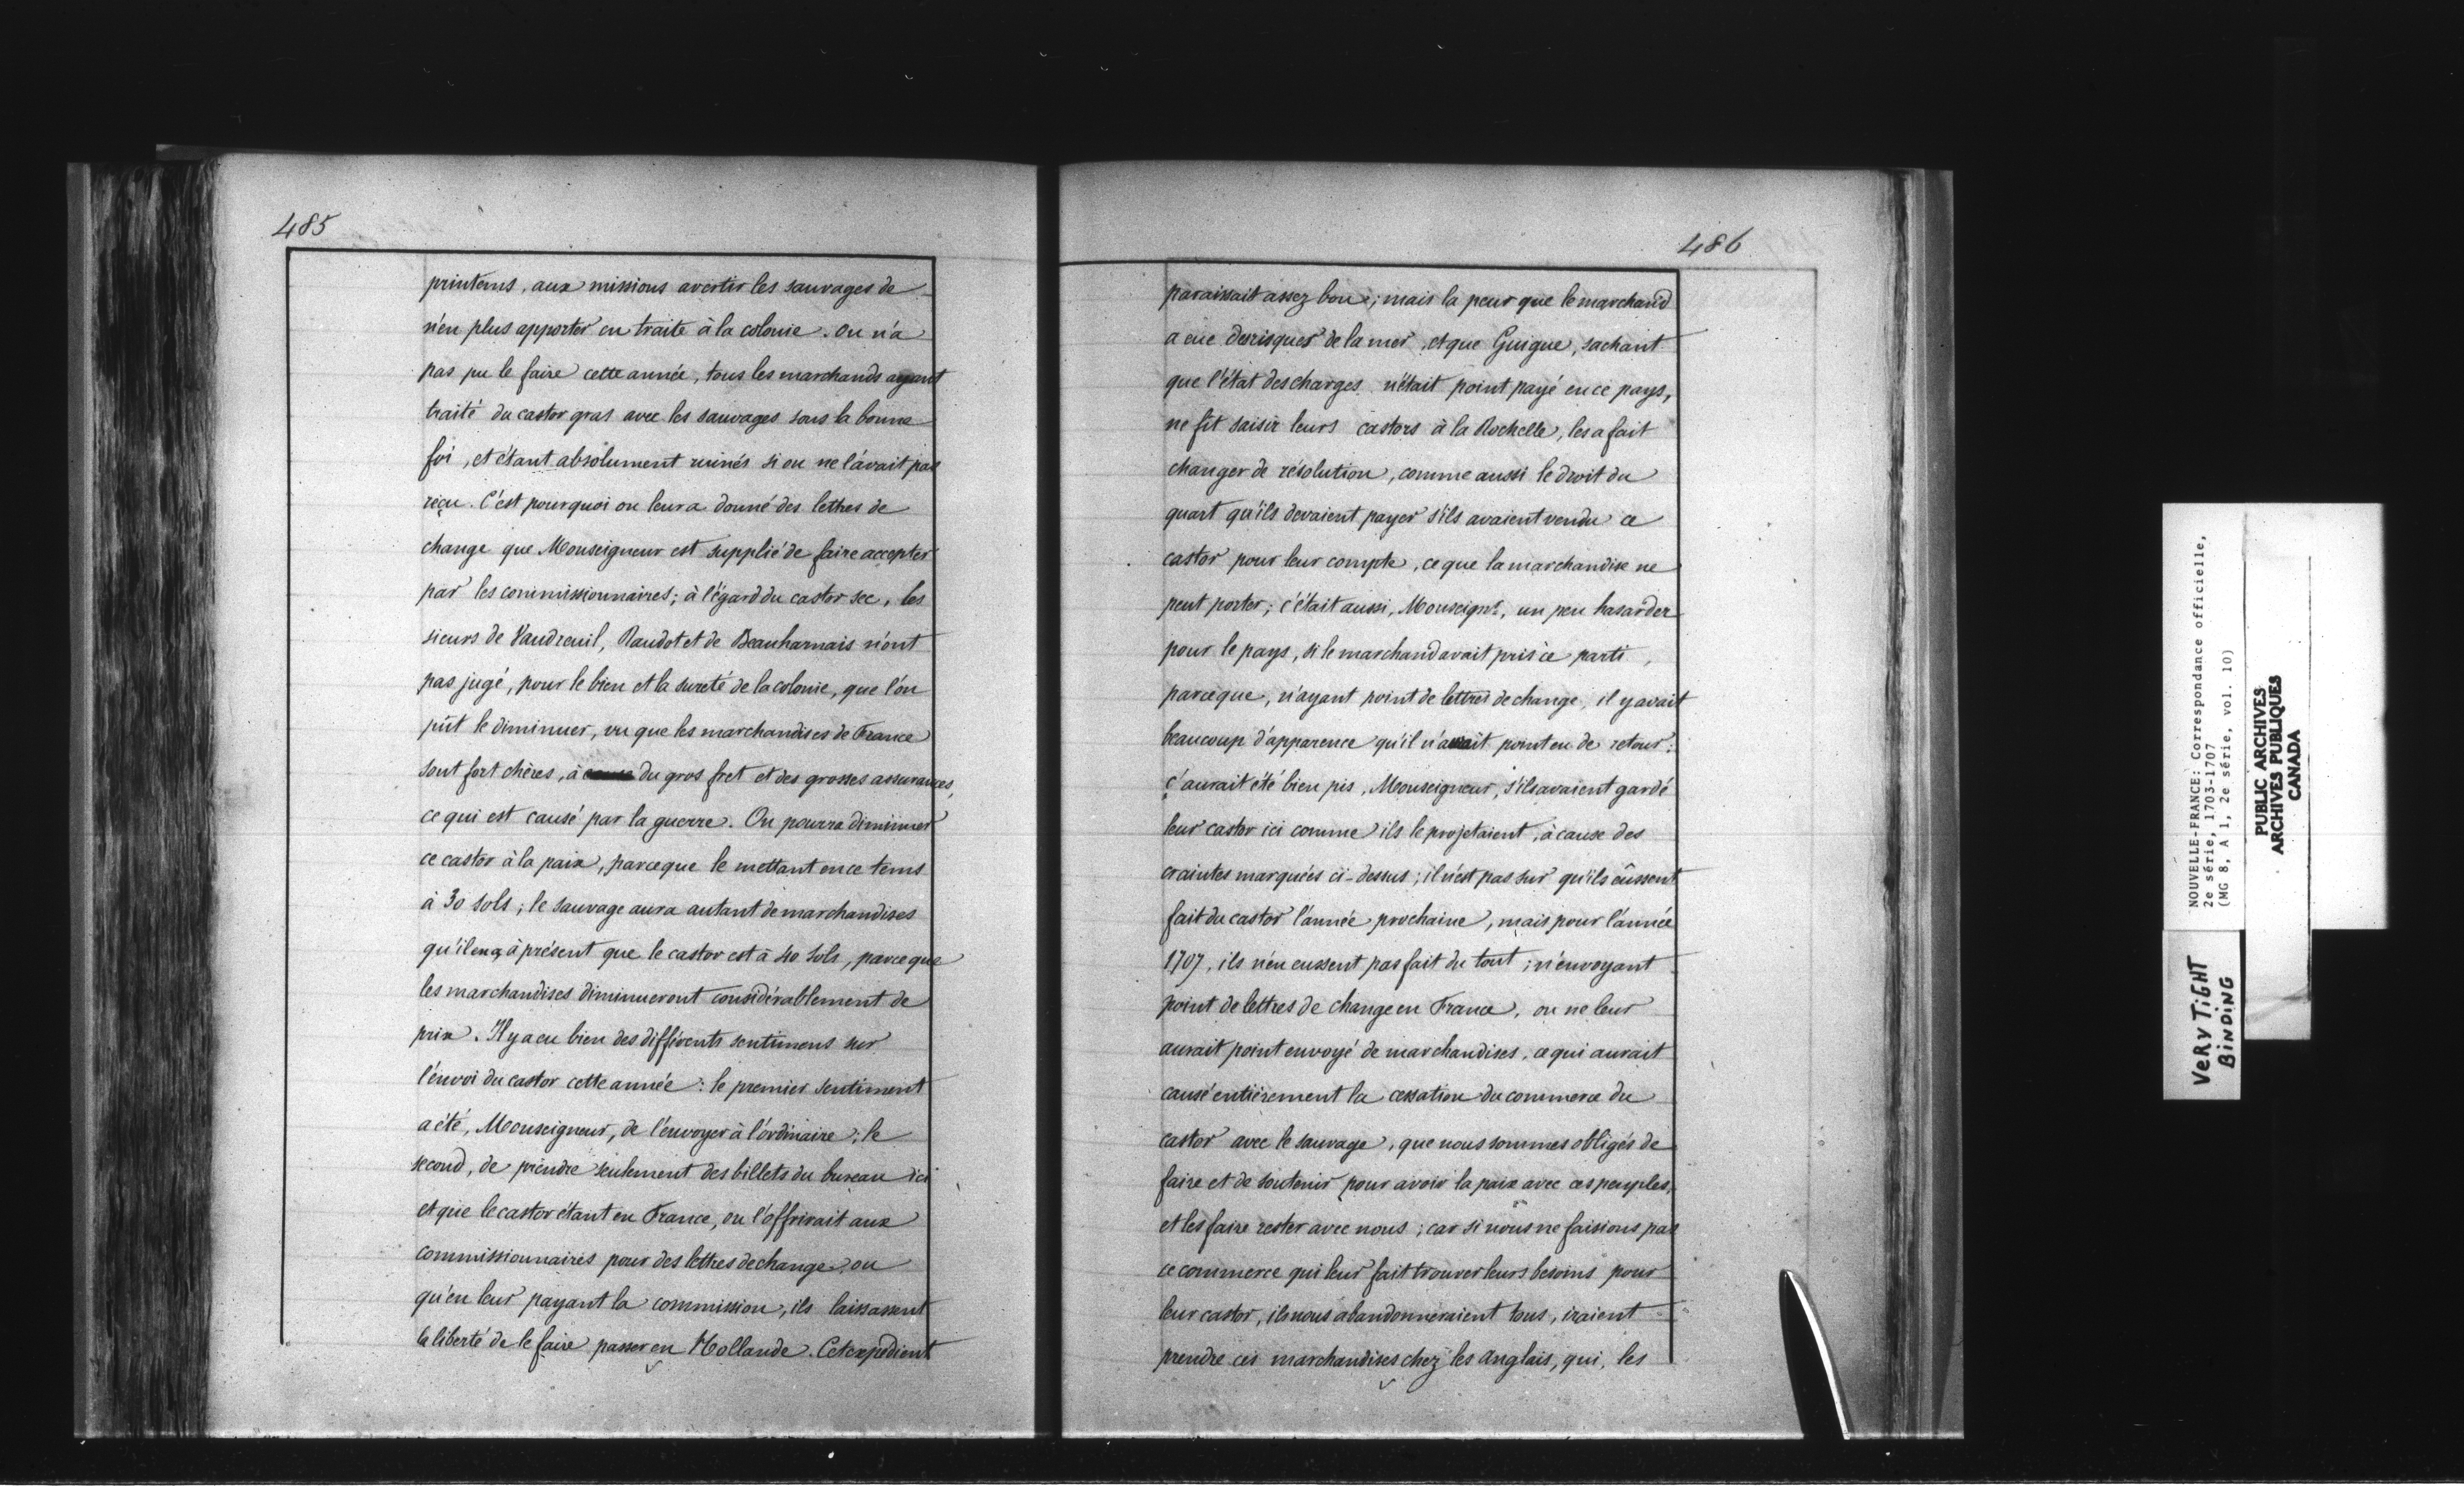 485
printems, aux missions avertir les sauvages de
n'en plus apporter en traite à la colonie. On n'a
pas pu le faire cette année, tous les marchands ayant
traité du castor gras avec les sauvages sous la bonne
foi, et étant absolument ruinés si on ne l'avait pas
reçu. C'est pourquoi on leur a donné des lettres de
change que Monseigneur est supplié de faire accepter
par les commissionnaires; à l'égard du castor sec, les
sieurs de Vaudreuil, Raudot et de Beauharnais n'ont
pas jugé, pour le bien et la sureté de la colonie, que l'on
pût le diminuer, vu que les marchandises de France
sont fort chères, à cause du gros fret et des grosses assurances,
ce qui est causé par la guerre. On pourra diminuer
ce castor à la paix, parceque le mettant en ce tems
à 30 sols; le sauvage aura autant de marchandises
qu'il en a, à présent que le castor est à 40 sols, parce que
les marchandises diminueront considérablement de
prix. Il y a eu bien des différents sentimens sur
l'envoi du castor cette année: le premier sentiment
a été, Monseigneur, de l'envoyer à l'ordinaire; le
second, de prendre seulement des billets du bureau ici
et que le castor étant en France, on l'offrirait aux
commissionnaires pour des lettres de change, ou
qu'en leur payant la commission, ils laissassent
la liberté de le faire passer en Hollande. Cet expédient
486
paraissait assez bon; mais la peur que le marchand
a eue des risques de la mer, et que Guigue, sachant
que l'état des charges n'était point payé en ce pays,
ne fit saisir leurs castors à la Rochelle, les a fait
changer de résolution, comme aussi le droit du
quart qu'ils devaient payer s'ils avaient vendu ce
castor pour leur compte, ce que la marchandise ne
peut porter; c'était aussi, Monseignr, un peu hasarder
pour le pays, si le marchand avait pris ce parti,
parceque, n'ayant point de lettres de change, il y avait
beaucoup d'apparence qu'il n'aurait point eu de retour:
ç'aurait été bien pis, Monseigneur, s'ils avaient gardé
leur castor ici comme ils le projetaient, à cause des
craintes marquées ci-dessus; il n'est pas sur qu'ils eûssent
fait du castor l'année prochaine, mais pour l'année
1707, ils n'en eussent pas fait du tout; n'envoyant
point de lettres de change en France, on ne leur
aurait point envoyé de marchandises, ce qui aurait
causé entièrement la cessation du commerce du
castor avec le sauvage, que nous sommes obligés de
faire et de soutenir pour avoir la paix avec ces peuples,
et les faire rester avec nous; car si nous ne faisions pas
ce commerce qui leur fait trouver leurs besoins pour
leur castor, ils nous abandonneraient tous, iraient
prendre ces marchandises chez les anglais, qui, les
NOUVELLE-FRANCE: Correspondance officielle,
2e série, 1703-1707
(MG 8, A 1, 2e série, vol. 10)
PUBLIC ARCHIVES
ARCHIVES PUBLIQUES
CANADA
VERY TIGHT
BINDING